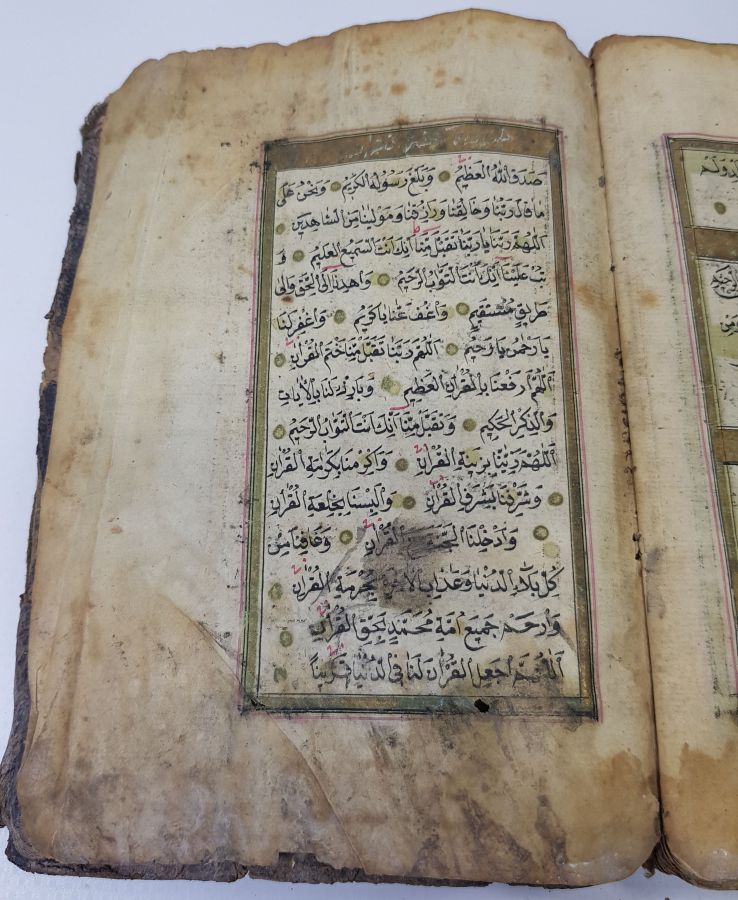 صَدَقَ اللهُ العَظِيمُ وَبَلَّغَ رَسُولُهُ الكَرِيمُ وَنَحْنُ عَلَى
مَا قَالَ رَبُّنَا وَخَالِقُنَا وَرَازِقُنَا وَمَوْلٰينَا مِنَ الشَّاهِدِينَ
اَللّٰهُمَّ رَبَّنَا يَا رَبَّنَا تَقَبَّلْ مِنَّا اِنَّكَ اَنْتَ السَّمِيعُ العَلِيمُ وَ
تُبْ عَلَيْنَا اِنَّكَ اَنْتَ التَّوَّابُ الرَّحِيمُ وَاهْدِنَا اِلَى الحَقِّ وَاِلَى
طَرِيقٍ مُسْتَقِيمٍ وَاعْفُ عَنَّا يَا كَرِيمُ وَاغْفِرْ لَنَا
يَا رَحْمٰنُ يَا رَحِيمُ اَللّٰهُمَّ رَبَّنَا تَقَبَّلْ مِنَّا خَتْمَ القُرْاٰنِ
اَللّٰهُمَّ ارْفَعْنَا بِالْقُرْاٰنِ العَظِيمِ وَبَارِكْ لَنَا بِالْاٰيَاتِ
وَالذِّكْرِ الحَكِيمِ وَتَقَبَّلْ مِنَّا اِنَّكَ اَنْتَ التَّوَّابُ الرَّحِيمُ
اَللّٰهُمَّ زَيِّنَّا بِزِينَةِ القُرْاٰنِ وَاَكْرِمْنَا بِكَرَامَةِ القُرْاٰنِ
وَشَرِّفْنَا بِشَرَفِ القُرْاٰنِ وَاَلْبِسْنَا بِخِلْعَةِ القُرْاٰنِ
وَاَدْخِلْنَا الجَنَّةَ القُرْاٰنِ وَعَافِنَا مِنْ
كُلِّ بَلَاءِ الدُّنْيَا وَعَذَابِ الْاٰخِرَةِ بِحُرْمَةِ القُرْاٰنِ
وَارْحَمْ جَمِيعَ اُمَّةِ مُحَمَّدٍ بِحَقِّ القُرْاٰنِ
اَللّٰهُمَّ اجْعَلِ القُرْاٰنَ لَنَا فِي الدُّنْيَا قَرِينًا